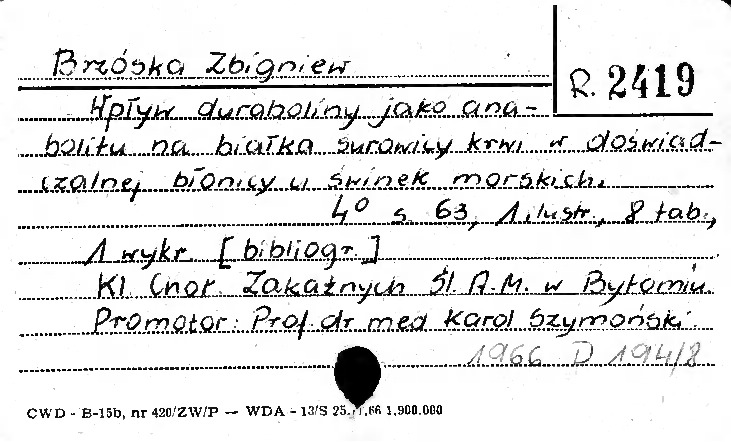 Brzóska Zbigniew
R. 2419
Wpływ duraboliny jako ana-
bolitu na białka surowicy krwi w doświad-
czalnej błonicy u świnek morskich.
4° s. 63, 1 ilustr., 8 tab.,
1 wykr. [bibliogr.]
Kl. Chor. Zakaźnych Śl. A.M. w Bytomiu
Promotor: Prof dr med Karol Szymoński
1966 D 194/8
CWD - B-15b, nr 420/ZW/P — WDA - 13/S 25. .66 1.900.000